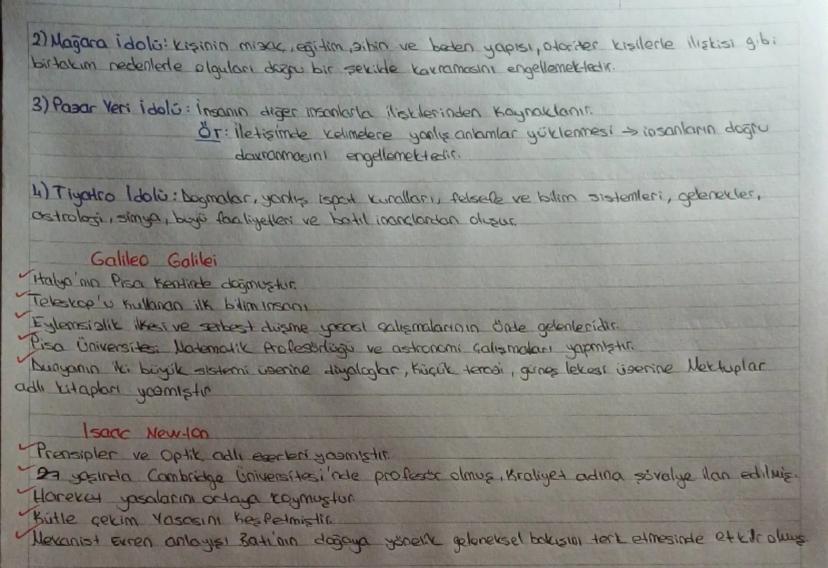 2) Mağara idolü: Kişinin mizaç, eğitim, zihin ve beden yapısı, otoriter kişilerle ilişkisi gibi
birtakım nedenlerle olguları doğru bir şekilde kavramasını engellemektedir.
3) Pazar Yeri idolü: İnsanın diğer insanlarla ilişklerinden kaynaklanır.
Ör: iletişimde kelimelere yanlış anlamlar yüklenmesi → insanların doğru
davranmasını engellemektedir.
4) Tiyatro İdolü: Dogmalar, yanlış ispat kuralları, felsefe ve bilim sistemleri, gelenekler,
astroloji, simya, büyü faaliyetleri ve batıl inançlardan oluşur.
Galileo Galilei
✓ İtalya'nın Pisa kentinde doğmuştur.
✓ Teleskop'u kullanan ilk bilim insanı
✓ Eylemsizlik ilkesi ve serbest düşme yasası çalışmalarının önde gelenleridir.
✓ Pisa Üniversitesi Matematik Profesörlüğü ve astronomi çalışmaları yapmıştır.
✓ Dünyanın iki büyük sistemi üzerine diyaloglar, Küçük terazi, güneş lekesi üzerine Mektuplar
adlı kitapları yazmıştır
Isaac Newton
✓ Prensipler ve Optik adlı eserleri yazmıştır.
✓ 27 yaşında Cambridge Üniversitesi'nde profesör olmuş, Kraliyet adına şövalye ilan edilmiş.
✓ Hareket yasalarını ortaya koymuştur
✓ Kütle çekim Yasasını Keşfetmiştir.
✓ Mekanist Evren anlayışı Batı'nın doğaya yönelik geleneksel bakışını terk etmesinde etkili olmuş.